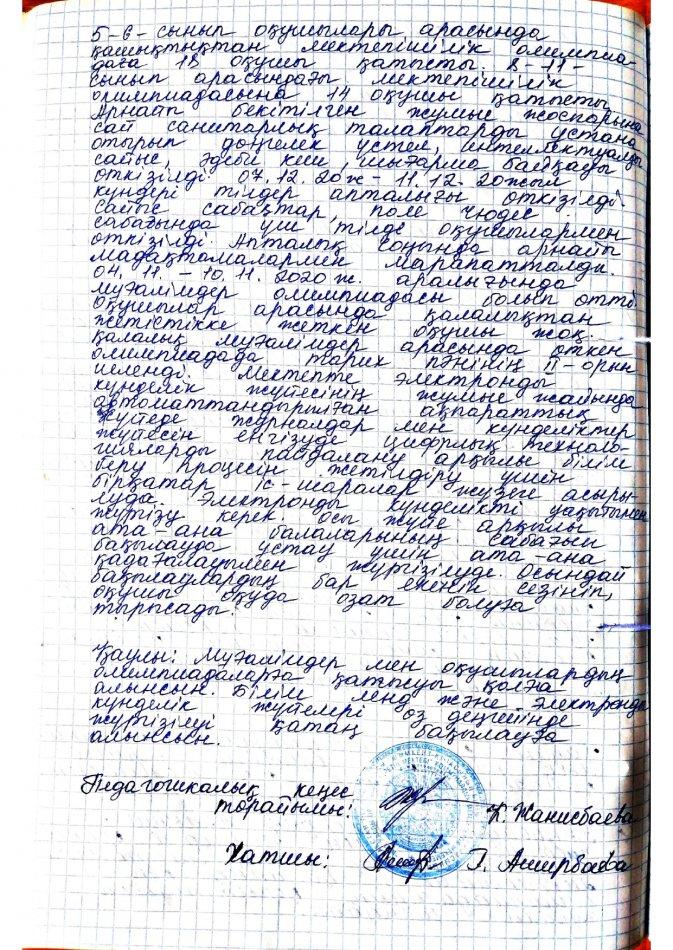 5-6- сынып оқушылары арасында
қашықтықтан мектепішілік олимпиа-
даға 18 оқушы қатысты. 8-11-
сынып арасындағы мектепішілік
олимпиадасына 14 оқушы қатысты.
Арнайы бекітілген жұмыс жоспарына
сай санитарлық талаптарды ұстана
отырып дөңгелек үстел, интеллектуалды
сайыс, әдеби кеш, шығарма байқауы
өткізілді 07.12.20ж - 11.12.20жыл
күндері тілдер апталығы өткізілді.
Сайыс сабақтар, поле чюдес
сабағында үш тілде оқушылармен
өткізілді. Апталық соңында арнайы
мадақтамалармен марапатталды.
04.11. - 10.11. 2020 ж. аралығында
мұғалімдер олимпиадасы болып өтті.
Оқушылар арасында қалалықтан
жетістікке жеткен оқушы жоқ.
Қалалық мұғалімдер арасында өткен
олимпиадада тарих пәнінің II-орын
иеленді. Мектепте электронды
күнделік жүйесінің жұмыс жайында
автоматтандырылған ақпараттық
жүйеде журналдар мен күнделіктер
жүйесін енгізуде цифрлық техноло-
гияларды пайдалану арқылы білім
беру процесін жетілдіру үшін
бірқатар іс-шаралар жүзеге асыры-
луда. Электронды күнделікті уақытымен
жүргізу керек. Осы жүйе арқылы
ата-ана балаларының сабағын
бақылауда ұстау үшін ата-ана
қадағалауымен жүргізілуде. Осындай
бақылаулардың бар екенін сезініп,
оқушы оқуда озат болуға
тырысады.
Қаулы: Мұғалімдер мен оқушылардың
олимпиадаларға қатысуы қолға
алынсын. Білім ленд және электронды
күнделік жүйелері өз деңгейінде
жүргізілуі қатаң бақылауға
алынсын.
Педагогикалық кеңес
торайымы: К. Жанисбаева
Хатшы: Г. Аширбаева